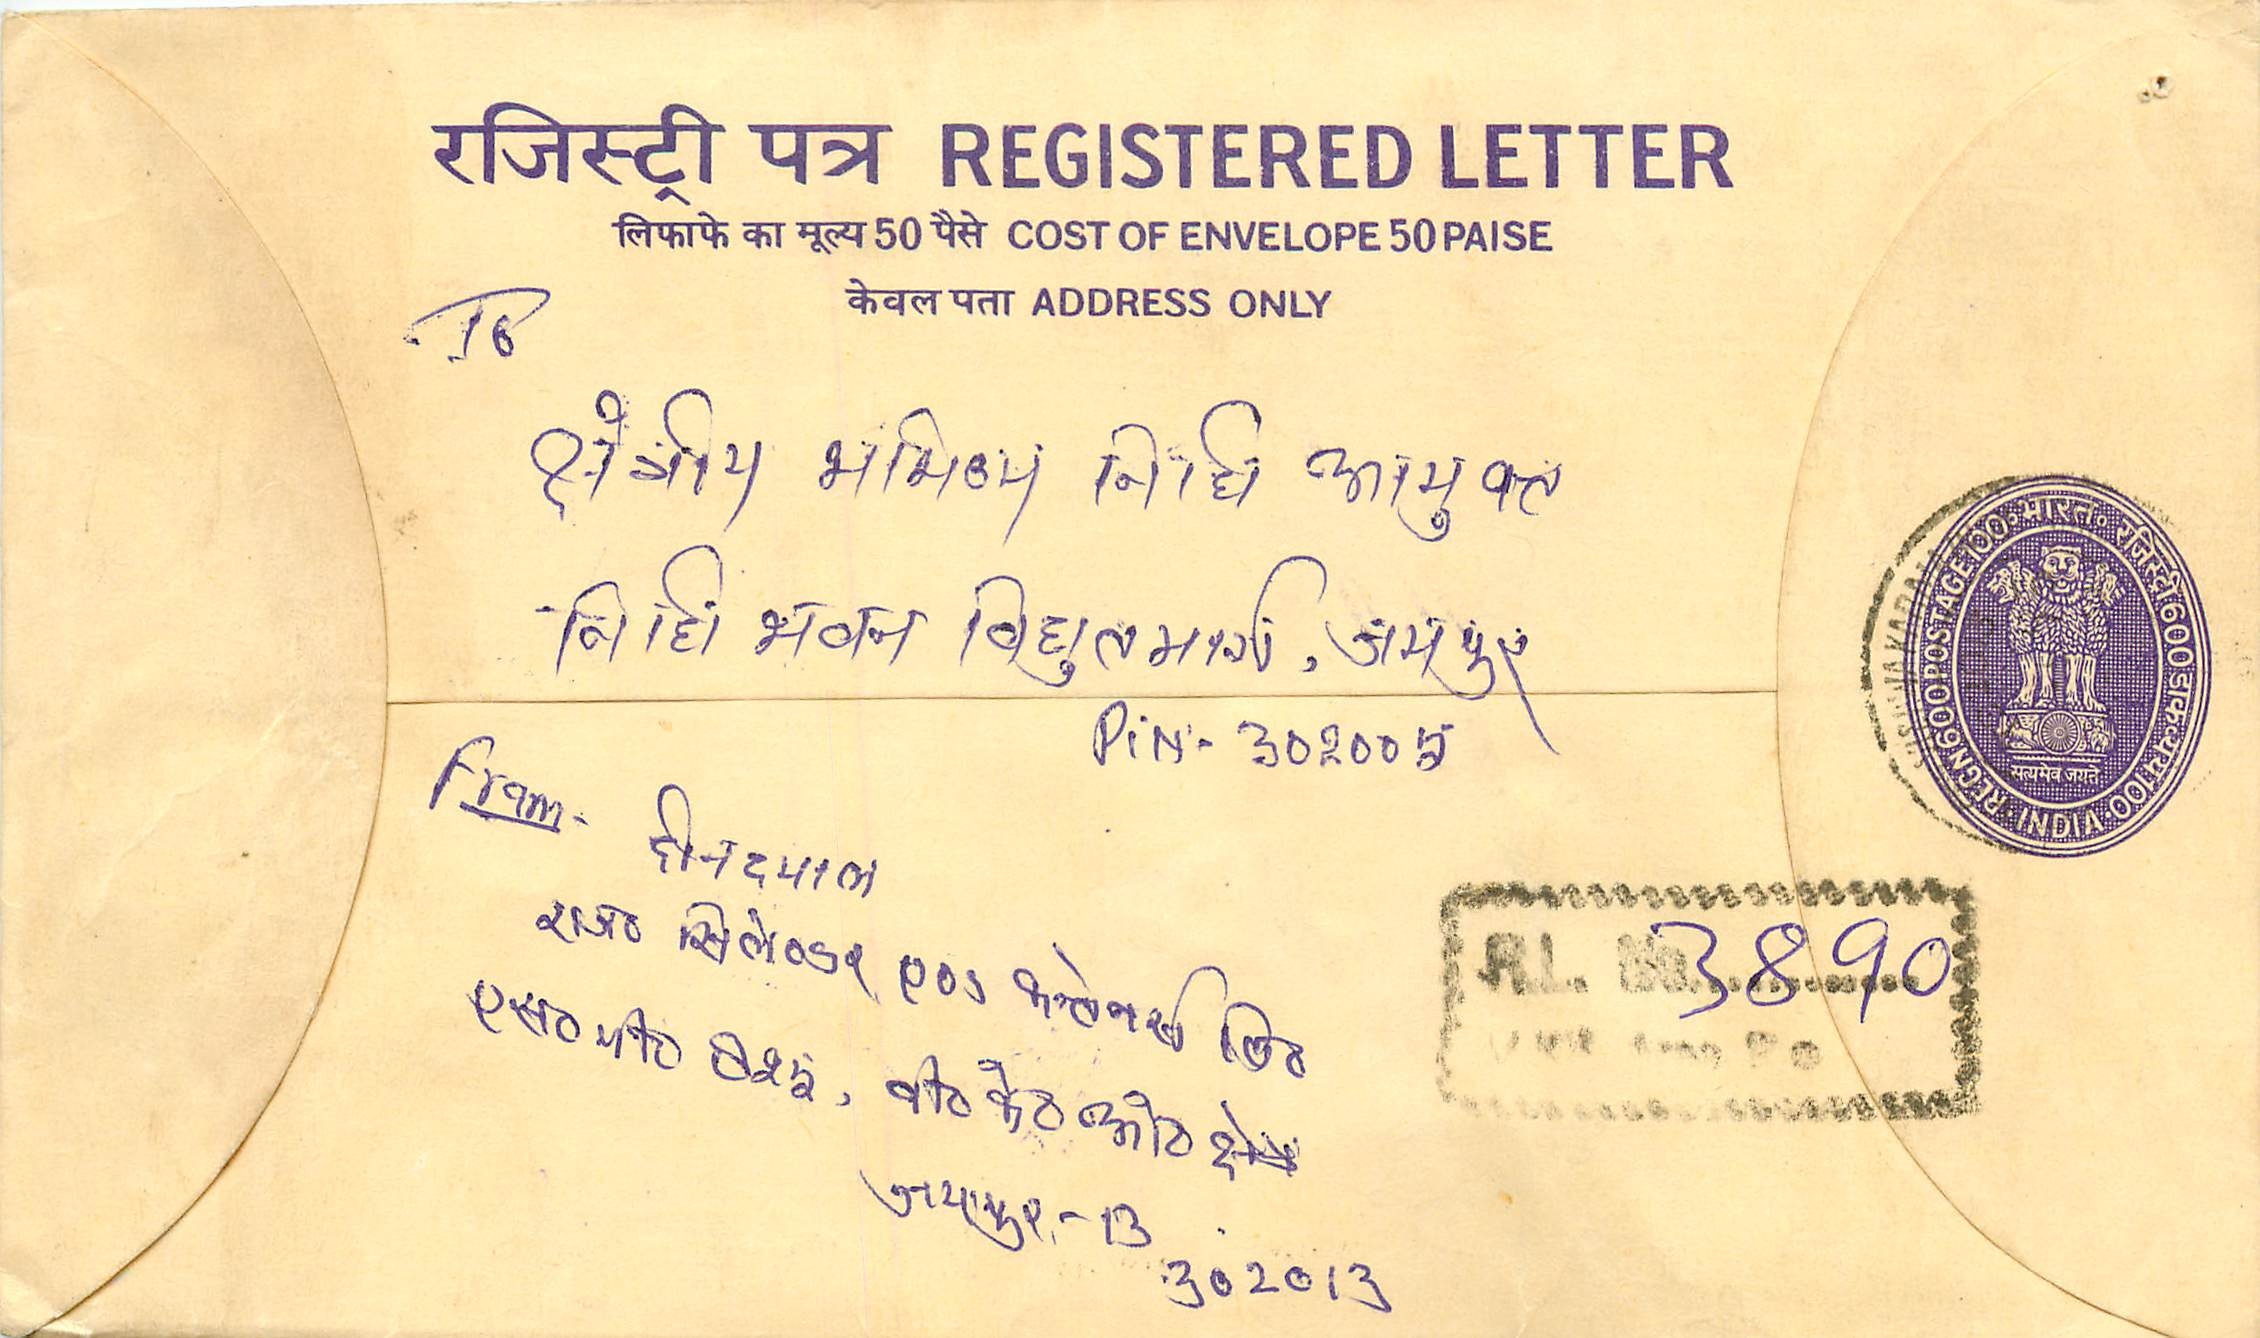 रजिस्ट्री पत्र REGISTERED LETTER
लिफाफे का मूल्य 50 पैसे COST OF ENVELOPE 50 PAISE
केवल पता ADDRESS ONLY
To
क्षेत्रीय भविष्य निधि आयुक्त
निधि भवन विद्युत मार्ग, जयपुर
PIN- 302005
भारत रजिस्ट्री 600 डाक POSTAGE 100 REGN 600 INDIA
सत्यमेव जयते
From-
दीनदयाल
राज० सिलेण्डर एण्ड कन्टेनर्स लि०
एस० पी० 825, वी० के० आई० क्षेत्र
जयपुर-13
302013
R.L. No. 3890